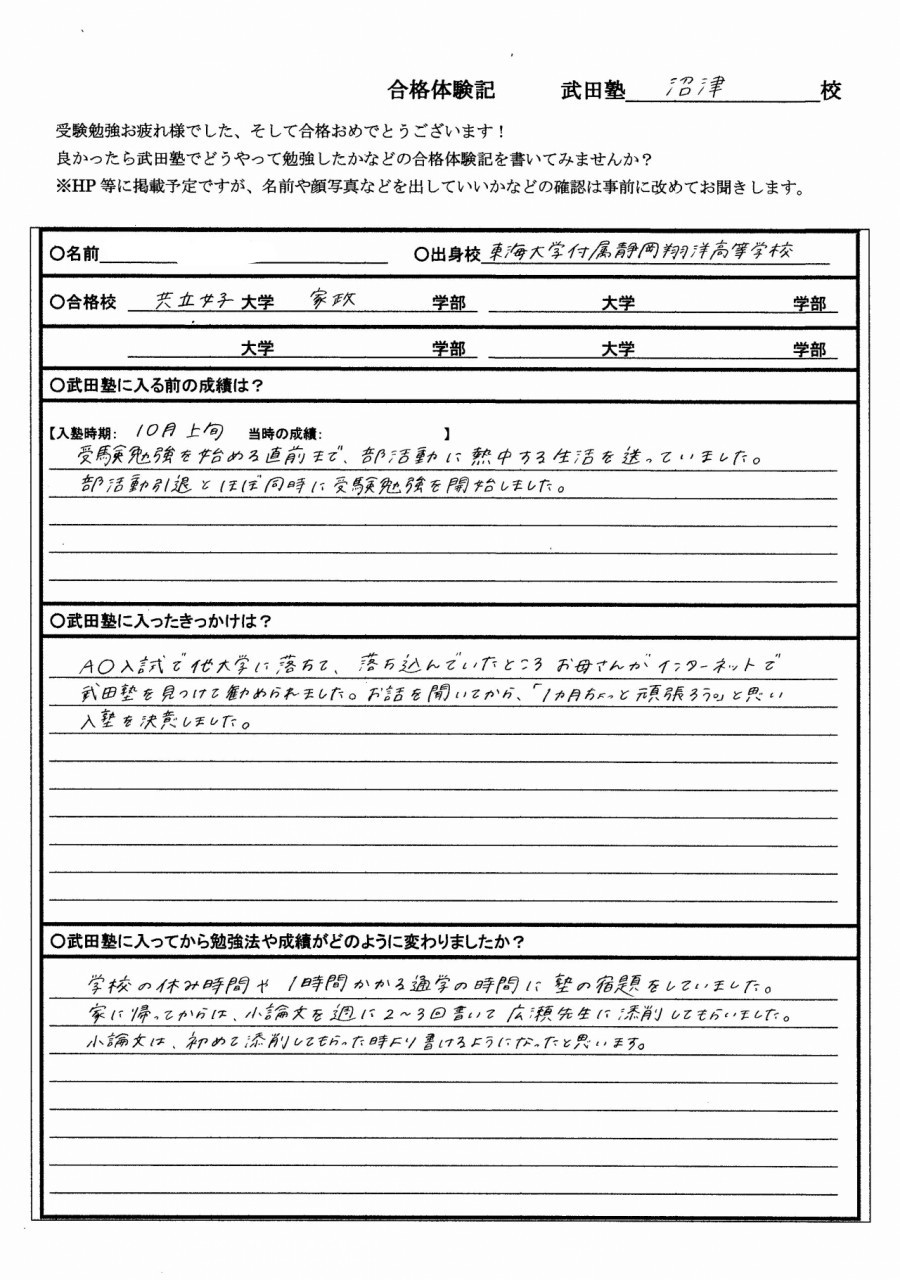 合格体験記 武田塾 沼津 校
受験勉強お疲れ様でした、そして合格おめでとうございます！
良かったら武田塾でどうやって勉強したかなどの合格体験記を書いてみませんか？
※HP 等に掲載予定ですが、名前や顔写真などを出していいかなどの確認は事前に改めてお聞きします。
○名前 ○出身校 東海大学付属静岡翔洋高等学校
○合格校 共立女子 大学 家政 学部 大学 学部
大学 学部 大学 学部
○武田塾に入る前の成績は？
【入塾時期： 10月上旬 当時の成績： 】
受験勉強を始める直前まで、部活動に熱中する生活を送っていました。
部活動引退とほぼ同時に受験勉強を開始しました。
○武田塾に入ったきっかけは？
AO入試で他大学に落ちて、落ち込んでいたところ お母さんがインターネットで
武田塾を見つけて勧められました。お話を聞いてから、「1カ月ちょっと頑張ろう。」と思い
入塾を決意しました。
○武田塾に入ってから勉強法や成績がどのように変わりましたか？
学校の休み時間や 1時間かかる通学の時間に 塾の宿題をしていました。
家に帰ってからは、小論文を週に2〜3回書いて 広瀬先生に添削してもらいました。
小論文は、初めて添削してもらった時より書けるようになったと思います。